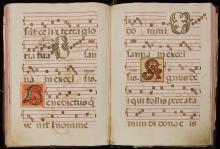 sūt celi et terra glo
ria tua
in excel sis.
Benedictus q
ve nit in nomine
do mi ni
sanna in excel sis.
Agnus de
i qui tollis peccata
mun di dona e is